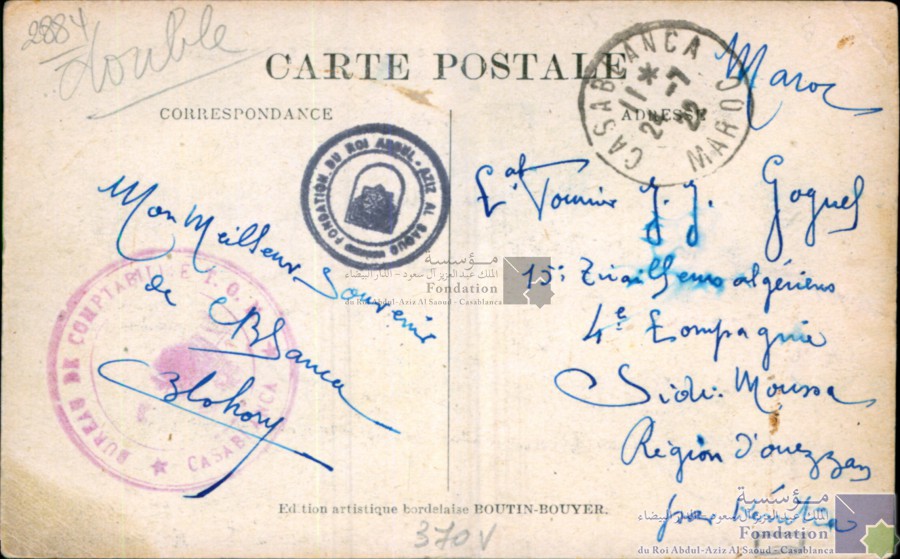 2884
double
CARTE POSTALE
CORRESPONDANCE
ADRESSE
CASABLANCA
MAROC
Maroc
FONDATION DU ROI ABDUL-AZIZ AL SAOUD
BUREAU DE COMPTABILITÉ
CASABLANCA
Mon Meilleur Souvenir
de
CBlanca
J. J. Goguel
15e Tirailleurs algériens
4e Compagnie
Sidi Moussa
Région d'ouezzan
par Kénitra
مؤسسة
الملك عبد العزيز آل سعود - الدار البيضاء
Fondation
du Roi Abdul-Aziz Al Saoud - Casablanca
Edition artistique bordelaise BOUTIN-BOUYER.
370V
مؤسسة
الملك عبد العزيز آل سعود - الدار البيضاء
Fondation
du Roi Abdul-Aziz Al Saoud - Casablanca